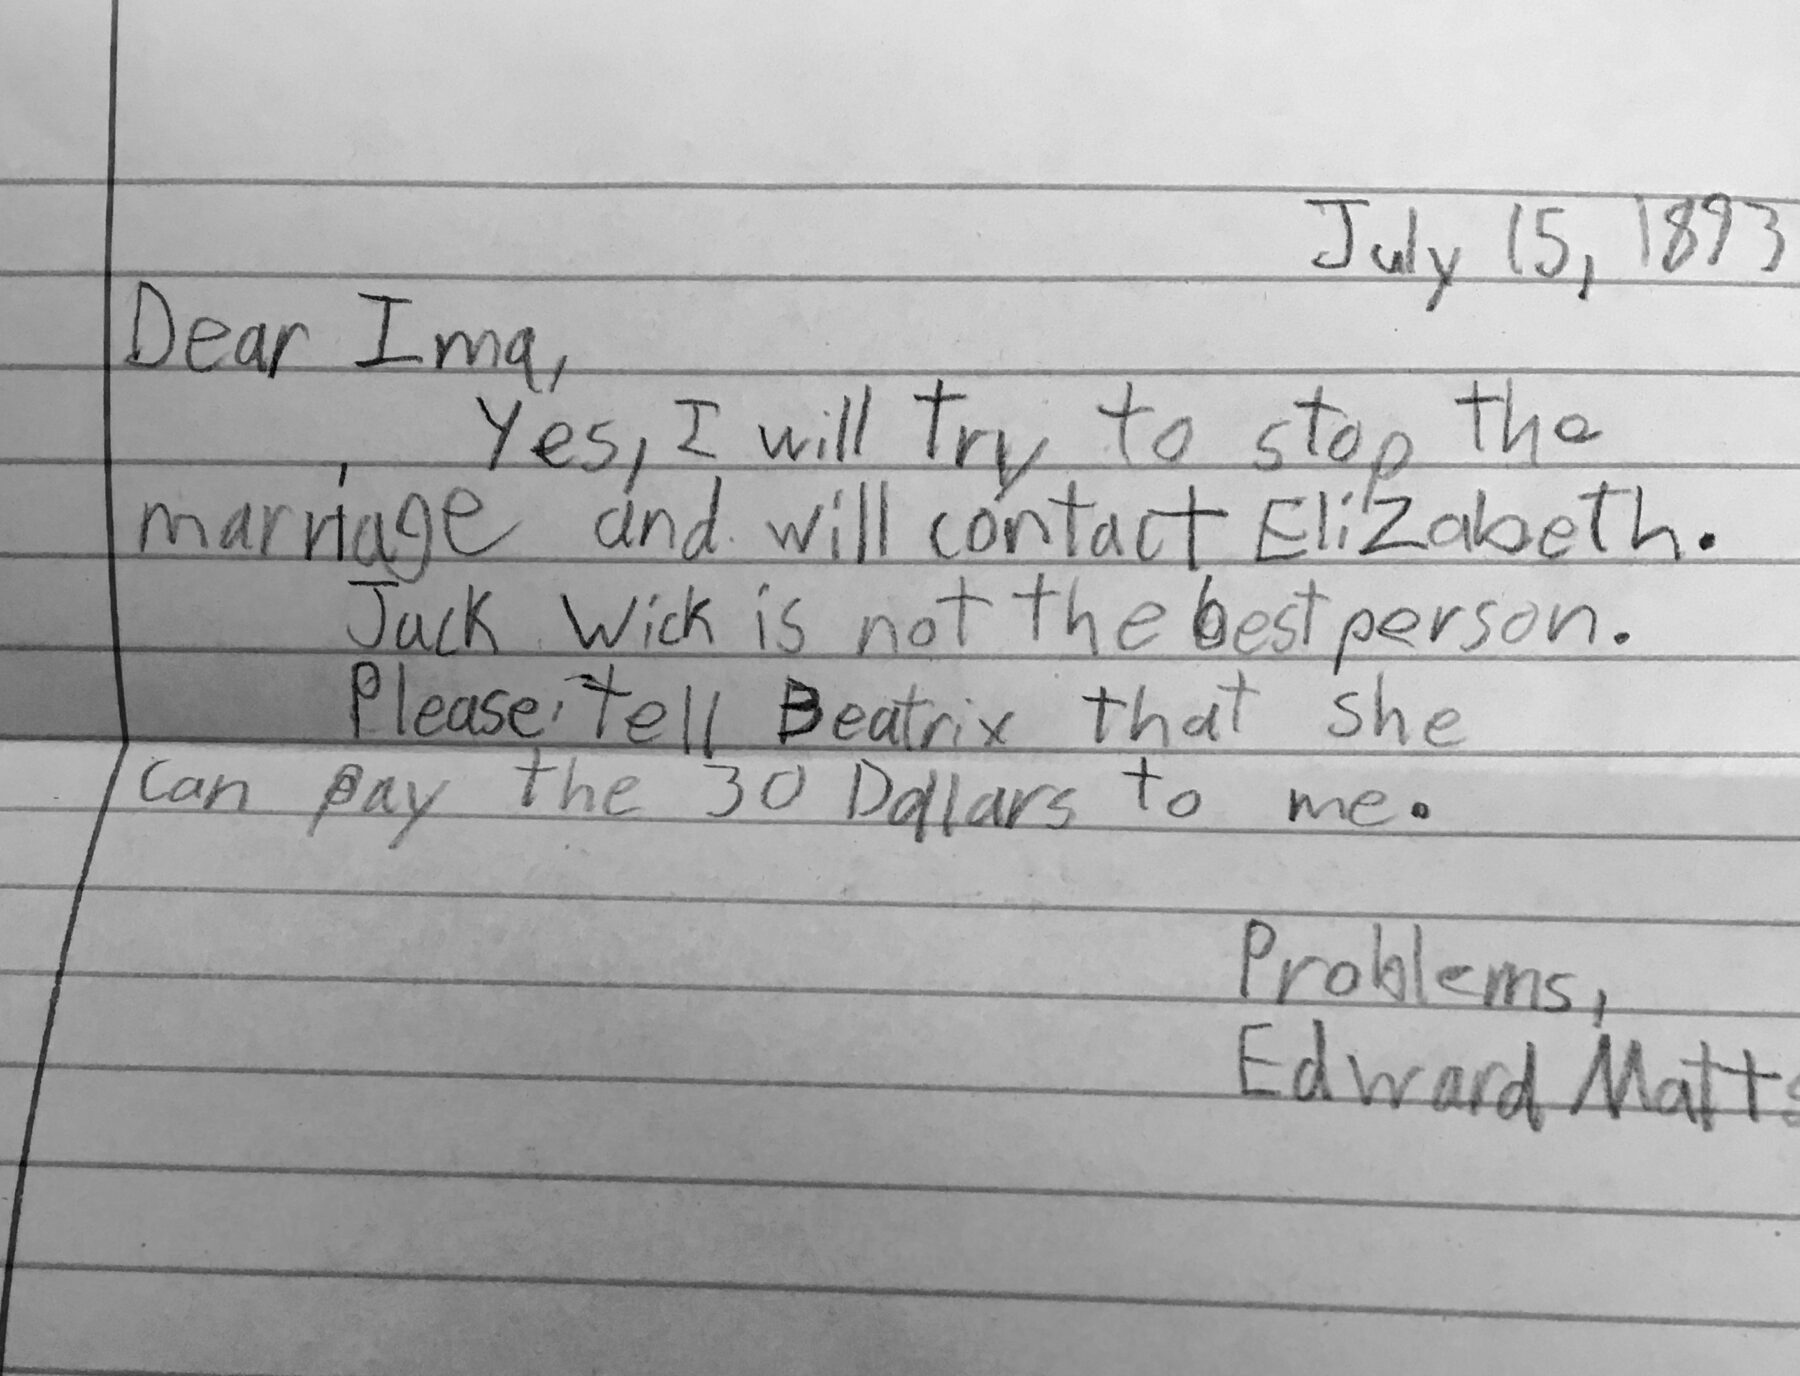 July 15, 1893
Dear Ima,
Yes, I will try to stop the
marriage and will contact Elizabeth.
Jack Wick is not the best person.
Please, tell Beatrix that she
can pay the 30 Dollars to me.
Problems,
Edward Matts